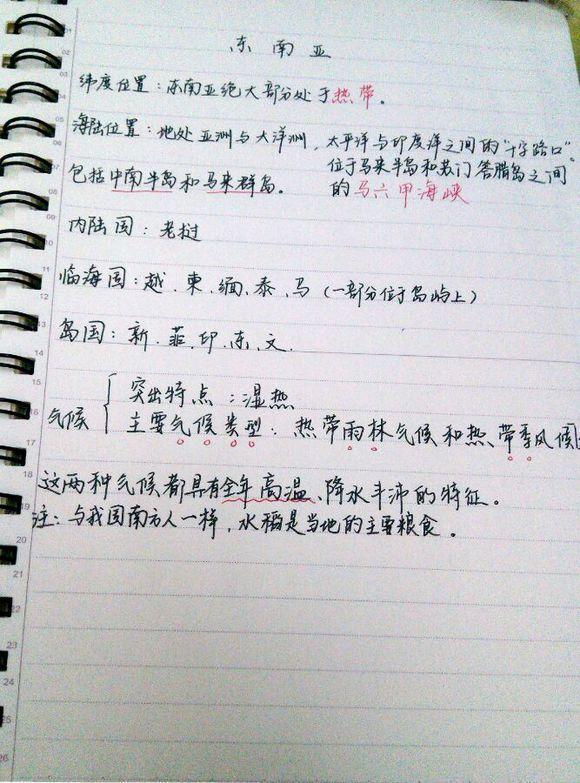 东南亚
纬度位置：东南亚绝大部分处于热带。
海陆位置：地处亚洲与大洋洲，太平洋与印度洋之间的"十字路口"。
位于马来半岛和苏门答腊岛之间
包括中南半岛和马来群岛。 的马六甲海峡
内陆国：老挝
临海国：越、柬、缅、泰、马（一部分位于岛屿上）
岛国：新、菲、印、东、文、
气候
突出特点：湿热
主要气候类型：热带雨林气候和热带季风候
这两种气候都具有全年高温、降水丰沛的特征。
注：与我国南方人一样，水稻是当地的主要粮食。
01
02
03
04
05
06
07
08
09
10
11
12
13
14
15
16
17
18
19
20
21
22
23
24
25
26